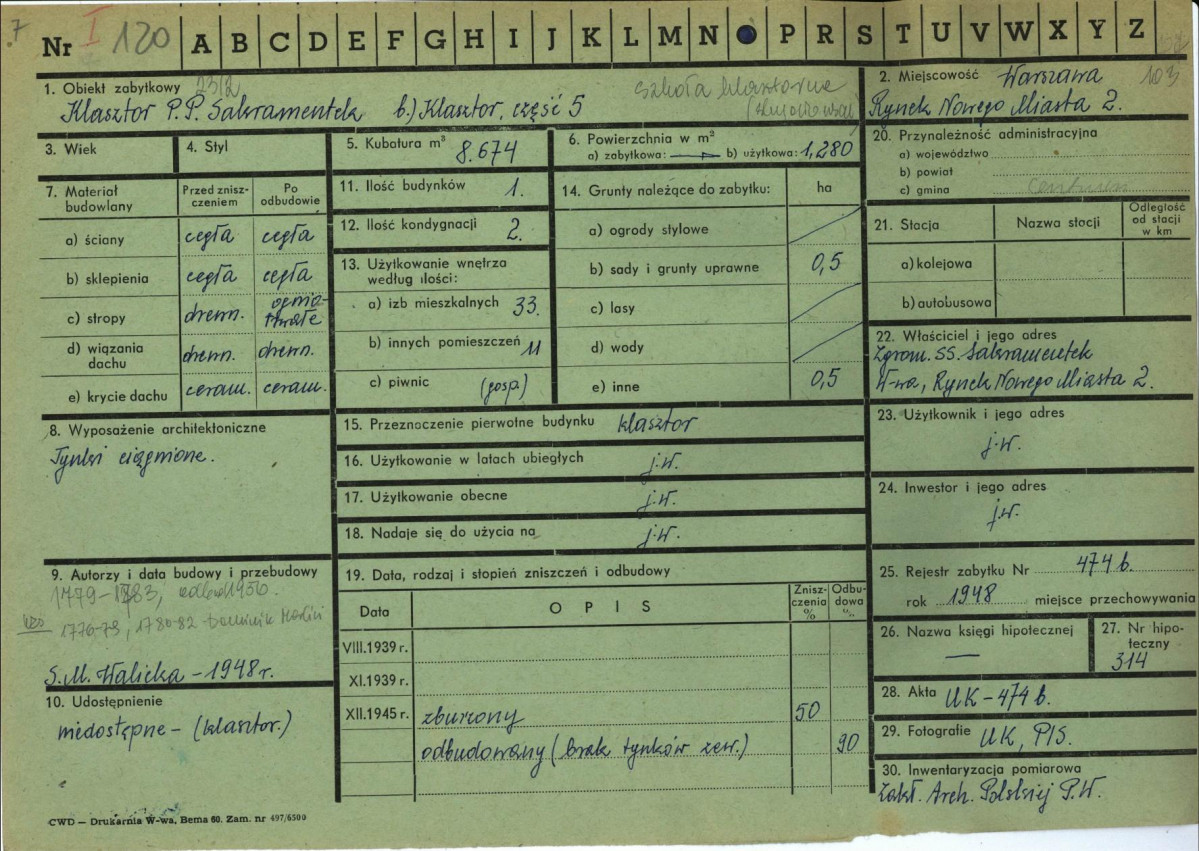 7
Nr I 120 A B C D E F G H I J K L M N P R S T U V W X Y Z
1. Obiekt zabytkowy 23/2 szkoła klasztorna
Klasztor P.P. Sakramentek b.) Klasztor, część 5
2. Miejscowość Warszawa 103
Rynek Nowego Miasta 2.
3. Wiek
4. Styl
5. Kubatura m³ 8.674
6. Powierzchnia w m²
a) zabytkowa: — b) użytkowa: 1,280
20. Przynależność administracyjna
a) województwo
b) powiat
c) gmina
7. Materiał budowlany
Przed zniszczeniem
Po odbudowie
a) ściany cegła cegła
b) sklepienia cegła cegła
c) stropy drewn. ogniotrwałe
d) wiązania dachu drewn. drewn.
e) krycie dachu ceram. ceram.
11. Ilość budynków 1.
12. Ilość kondygnacji 2.
13. Użytkowanie wnętrza według ilości:
a) izb mieszkalnych 33.
b) innych pomieszczeń 11
c) piwnic (gosp.)
14. Grunty należące do zabytku: ha
a) ogrody stylowe
b) sady i grunty uprawne 0,5
c) lasy
d) wody
e) inne 0,5
21. Stacja
Nazwa stacji
Odległość od stacji w km
a) kolejowa
b) autobusowa
22. Właściciel i jego adres
Zgrom. SS. Sakramentek
W-wa, Rynek Nowego Miasta 2.
8. Wyposażenie architektoniczne
Tynki ciągnione.
15. Przeznaczenie pierwotne budynku klasztor
16. Użytkowanie w latach ubiegłych j.w.
17. Użytkowanie obecne j.w.
18. Nadaje się do użycia na j.w.
23. Użytkownik i jego adres
j.w.
24. Inwestor i jego adres
j.w.
9. Autorzy i data budowy i przebudowy
1779-1883, odbud 1950.
1776-79, 1780-82 Dominik Merlini
S.M. Walicka - 1948 r.
10. Udostępnienie
niedostępne - (klasztor.)
19. Data, rodzaj i stopień zniszczeń i odbudowy
Data
OPIS
Zniszczenia %
Odbudowa %
VIII.1939 r.
XI.1939 r.
XII.1945 r. zburzony 50
odbudowany (brak tynków zew.) 90
25. Rejestr zabytku Nr 474 b.
rok 1948 miejsce przechowywania
26. Nazwa księgi hipotecznej
—
27. Nr hipoteczny
314
28. Akta UK - 474 b.
29. Fotografie UK, PIS.
30. Inwentaryzacja pomiarowa
Zakł. Arch. Polskiej P.W.
CWD — Drukarnia W-wa, Bema 60. Zam. nr 497/6500